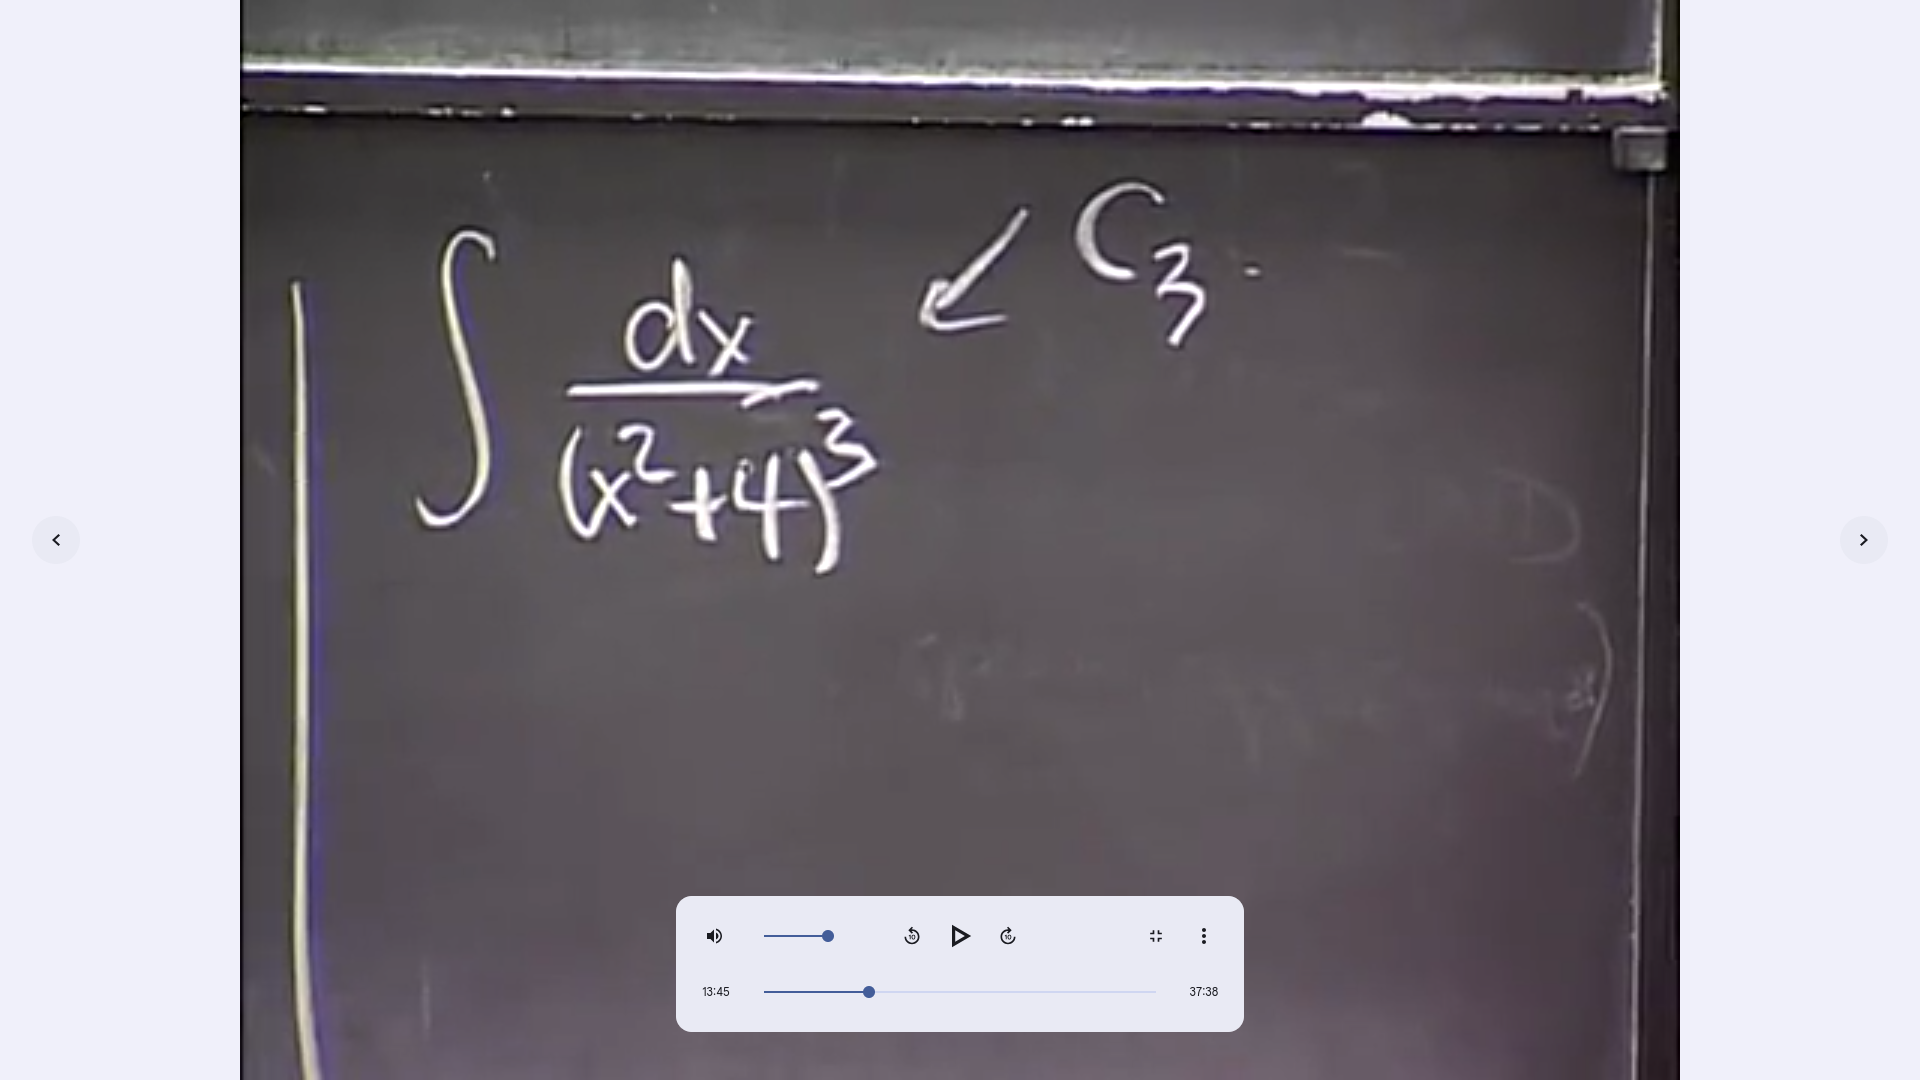 ∫ dx/(x²+4)³ ↙ C₃
10 10
13:45 37:38